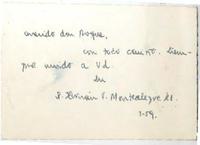 querido don Roque,
con todo cariño. Siem-
pre unido a Ud.
su
Montealegre
1-59.